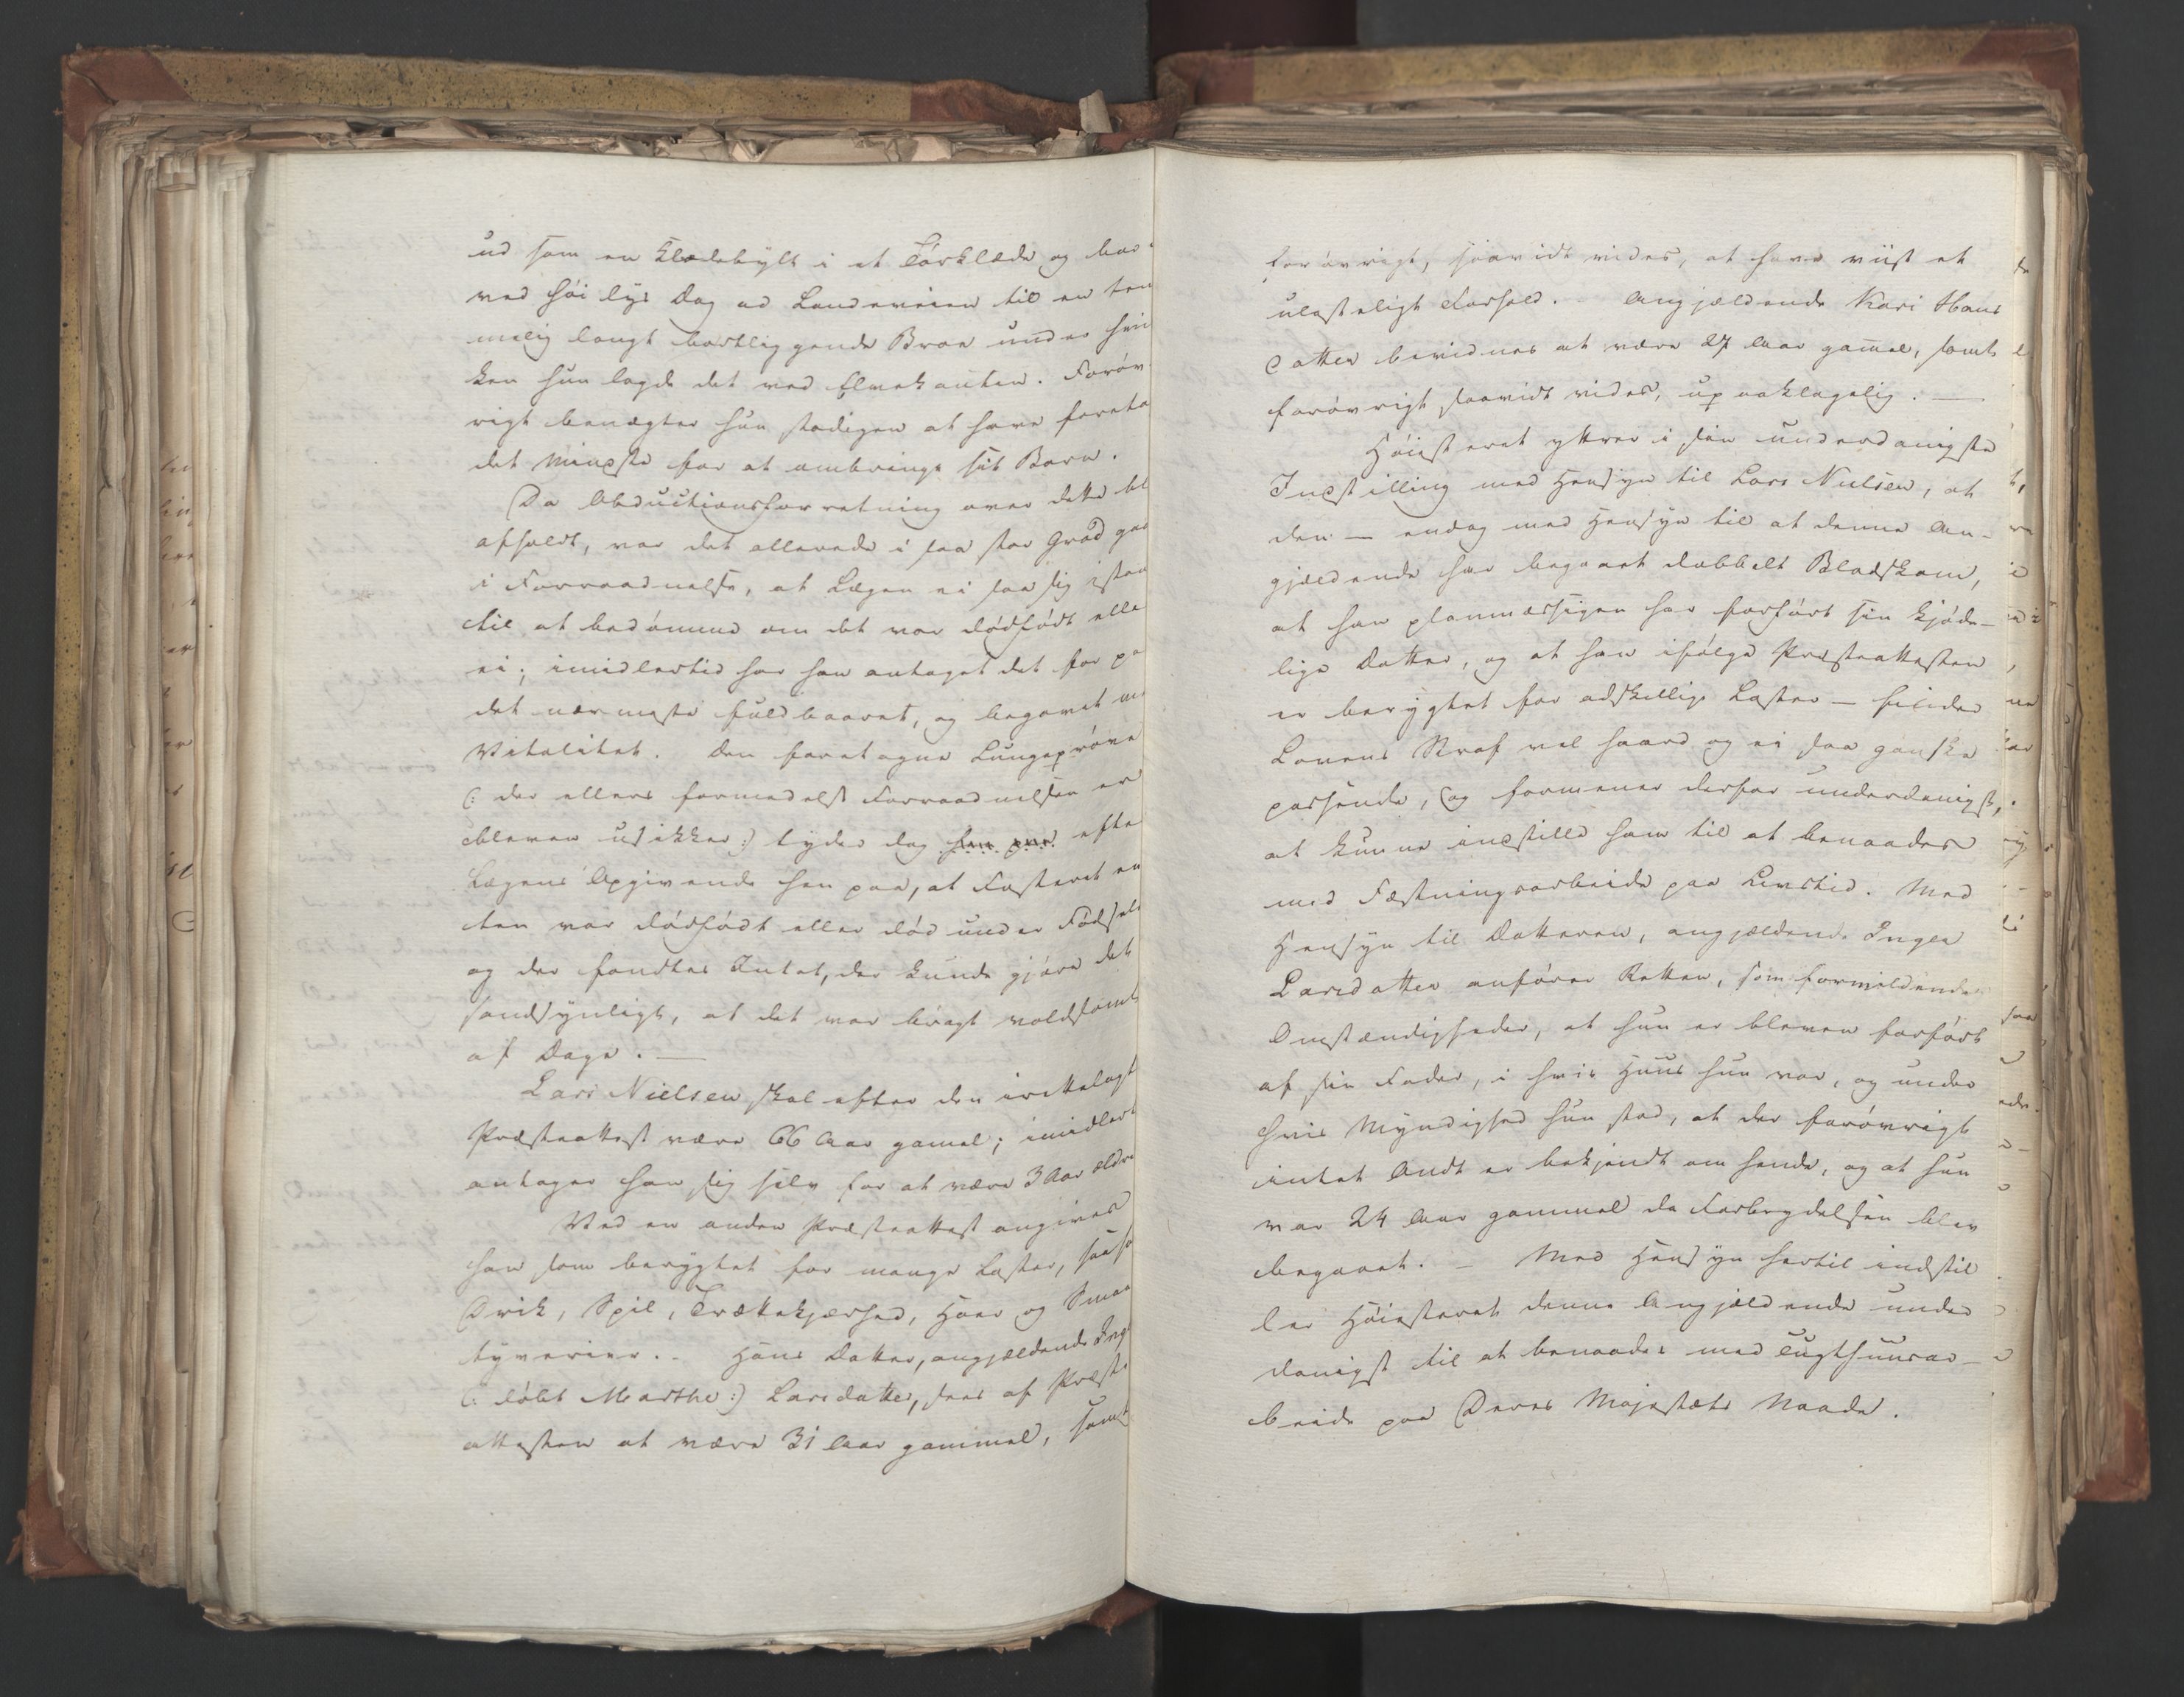 ud som en Klædebylt i et Törklæde og bar
ved höi lys Dag ad Landeveien til en tem
melig langt bortliggende Broe under hvil
ken hun lagde det ved Elvekanten. Foröv
rigt benægter hun stadigen at have foreta
det mindste for at ombringe sit Barn.
Da Obductionsforretning over dette bl
afholdt, var det allerede i saa stor Grad gaa
i Forraadnelse, at Lægen ei saa sig istan
til at bedömme om det var dödfödt elle
ei; imidlertid har han antaget det for pa
det nærmeste fuldbaaret, og begavet me
Vitalitet. Den foretagne Lungepröve
(: der ellers formedelst Forraadnelsen er
bleven usikker:) tyder dog efte
Lægens Opgivende hen paa, at Fosteret en
ten var dödfödt eller död under Födsele
og der fandtes Intet, der kunde gjöre det
sandsynligt, at det var bragt voldsomt
af Dage. —
Lars Nielsen skal efter den irettelagt
Præsteattest være 66 Aar gamel; imidlert
antager han sig selv for at være 3 Aar ældre
Ved en anden Præsteattest angives
han som berygtet for mange Laster, saaso
Drik, Spil, Trættekjærhed, Hoer og Smaa
tyverier. - Hans Datter, angjældende Inge
(: döbt Marthe:) Larsdatter, saaes af Præste
attesten at være 31 Aar gammel, samt
forövrigt, saavidt vides, at have viist et
ulasteligt Forhold. - Angjældende Kari Hans
datter bevidnes at være 27 Aar gamel, samt
forövrigt saavidt vides, upaaklagelig. —
Höiesteret yttrer i sin underdanigste
Indstilling med Hensyn til Lars Nielsen, at
den — endog med Hensyn til at denne An-
gjældende har begaaet dobbelt Blodskam,
at han planmæssigen har forfört sin kjöde-
lige Datter, og at han ifölge Præsteattesten
er berygtet for adskillige Laster — finder
Lovens Straf vel haard og ei saa ganske
passende, og formener derfor underdanigst,
at kunne indstille ham til at benaades
med Fæstningsarbeide paa Livstid. Med
Hensyn til Datteren, angjældende Inger
Larsdatter anförer Retten, som formildende
Omstændigheder, at hun er bleven forfört
af sin Fader, i hvis Huus hun var, og under
hvis Myndighed hun stod, at der forövrigt
intet Ondt er bekjendt om hende, og at hun
var 24 Aar gammel da Forbrydelsen blev
begaaet. - Med Hensyn hertil indstil
ler Höiesteret denne Angjældende under
danigst til at benaades med Tugthuusar-
beide paa Deres Majestæts Naade.